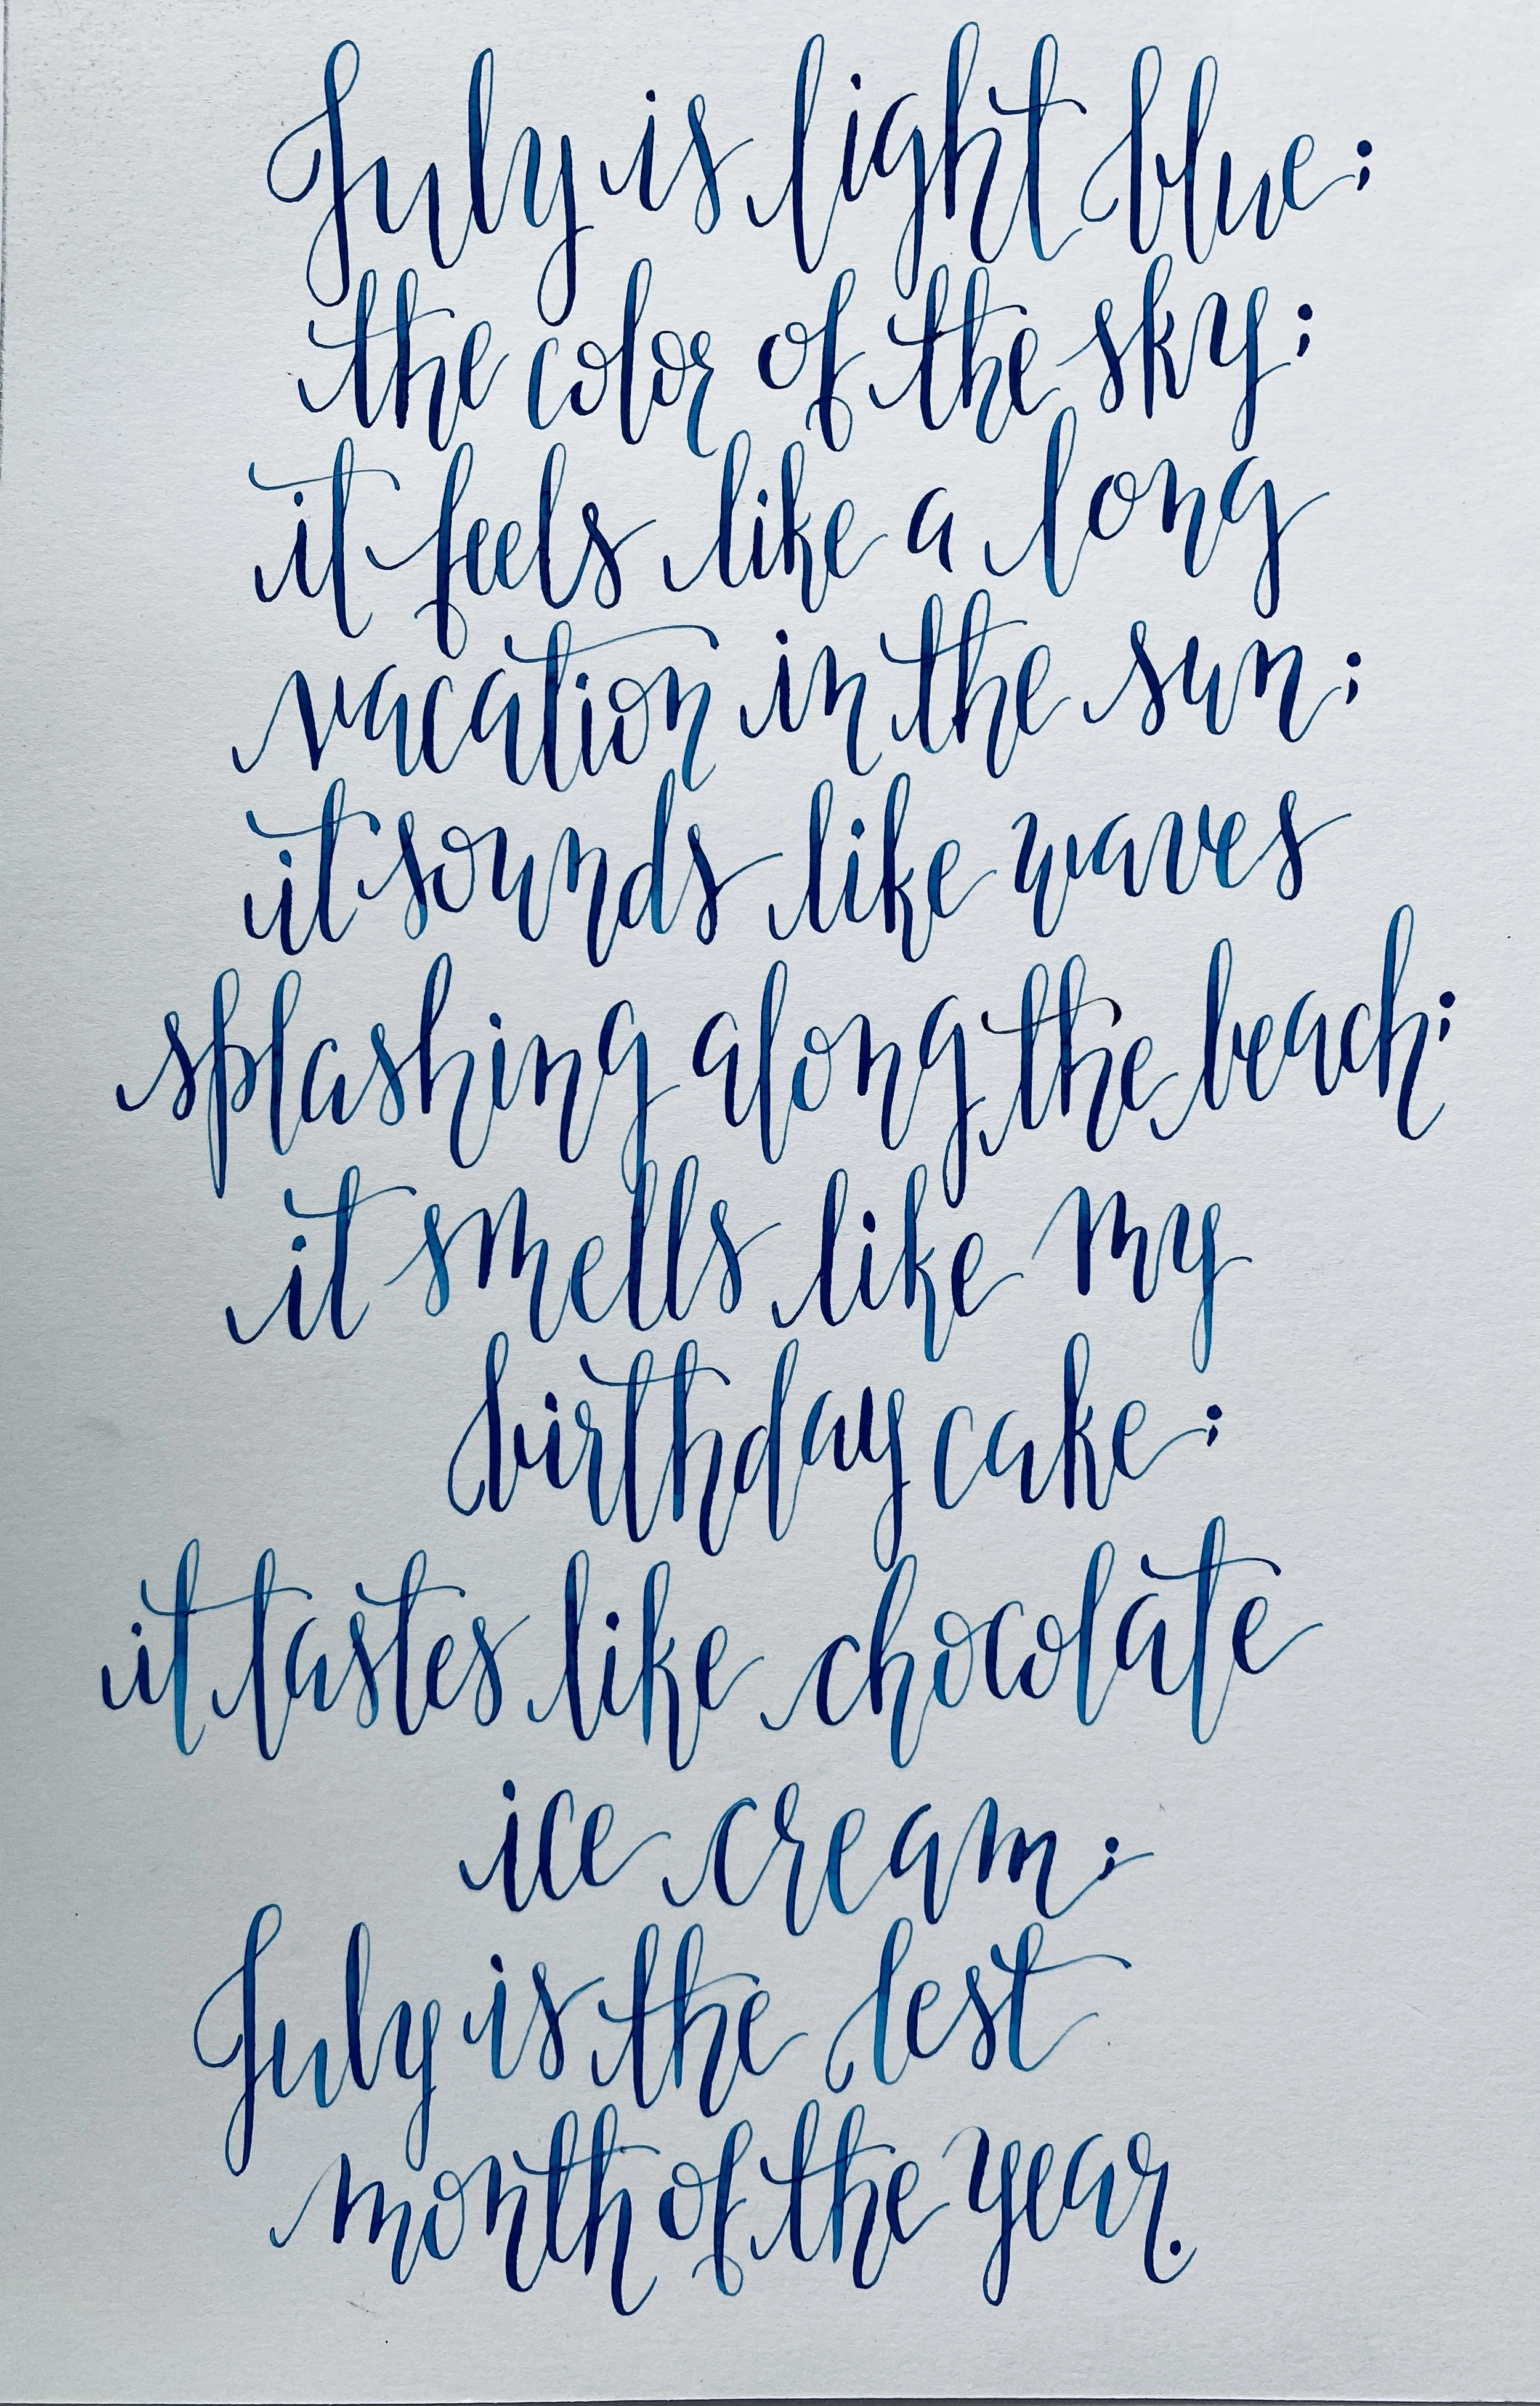 July is light blue;
the color of the sky;
it feels like a long
vacation in the sun;
it sounds like waves
splashing along the beach;
it smells like my
birthday cake;
it tastes like chocolate
ice cream;
July is the best
month of the year.